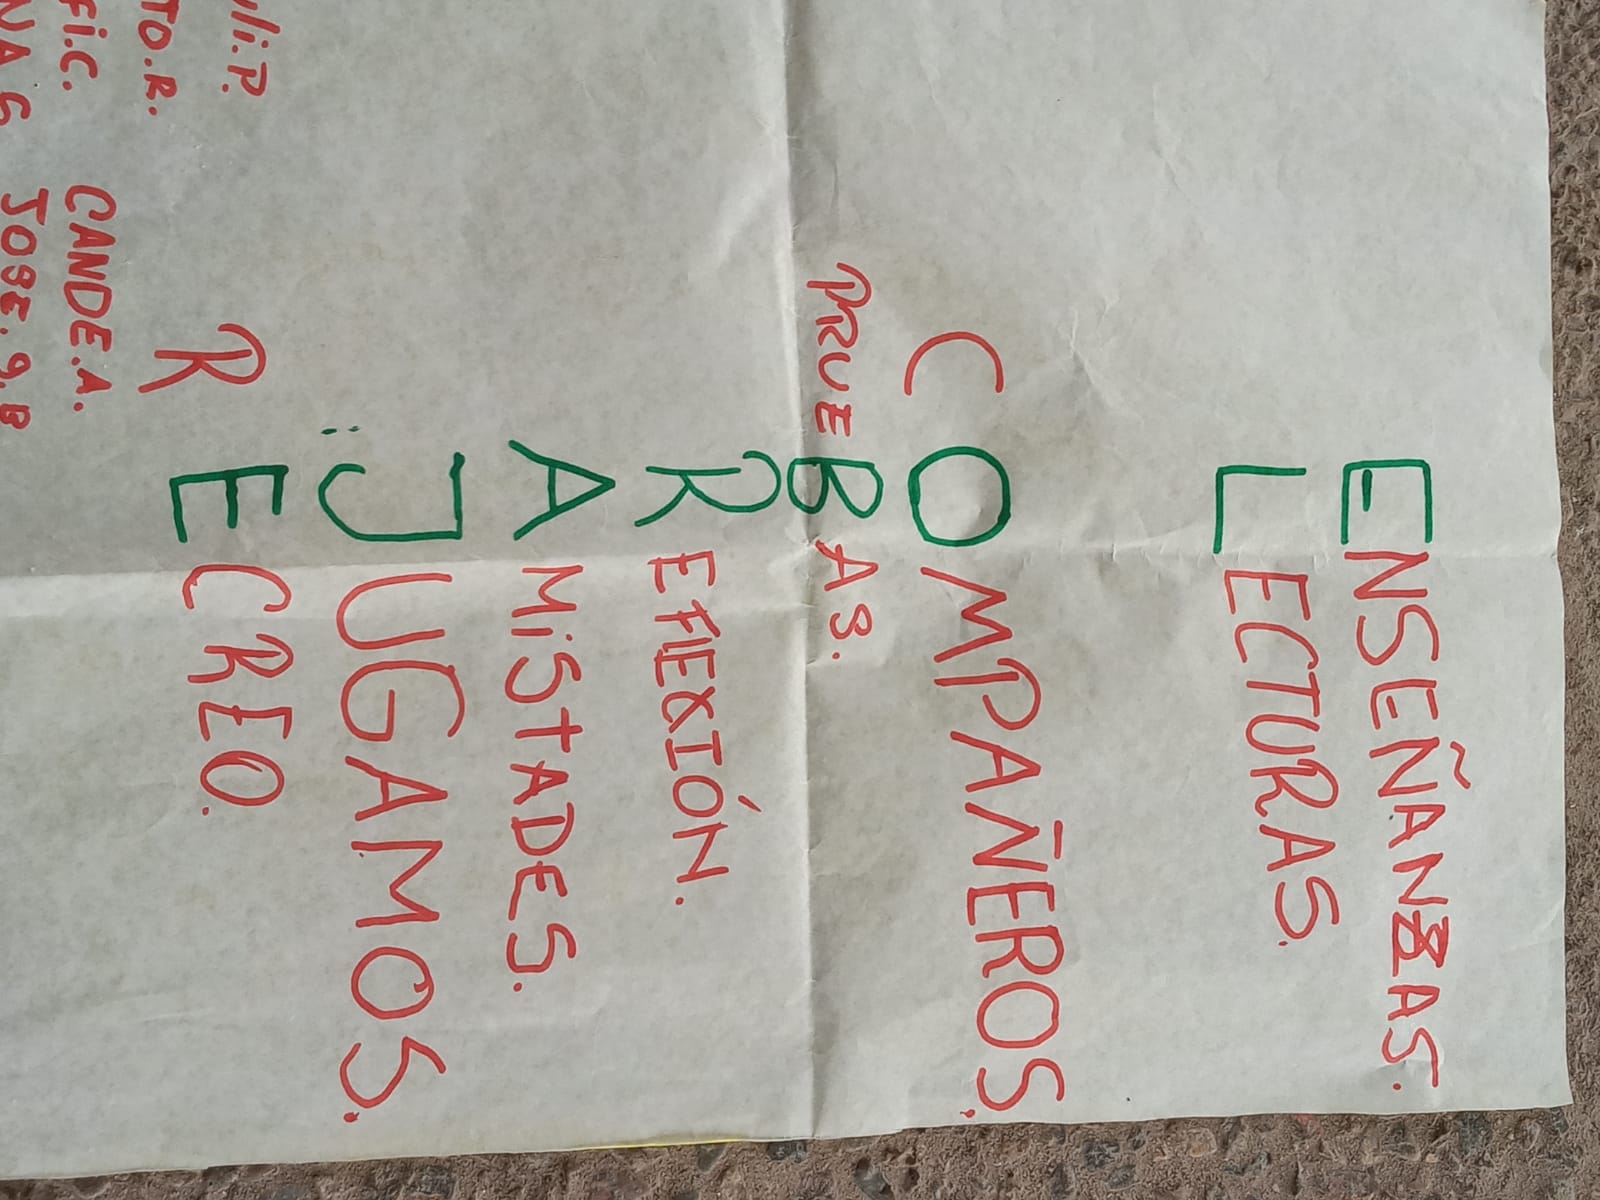 ENSEÑANZAS.
LECTURAS.
COMPAÑEROS.
PRUEBAS.
REFLEXIÓN.
AMiStADES.
JUGAMOS.
RECREO.
uli.P.
TO.R.
Fi.C. CANDE.A.
NA G JOSE.